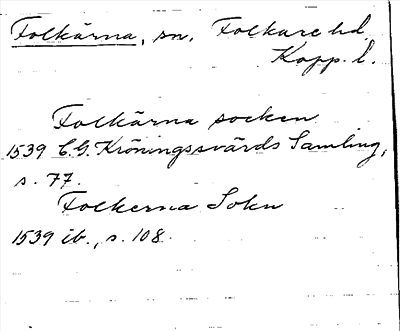 Folkärna, sn. Folkare hd.
Kopp. l.
Folkärna socken
1539 C.G. Kröningssvärds Samling,
s. 77.
Folkerna Sokn
1539 ib., s. 108.